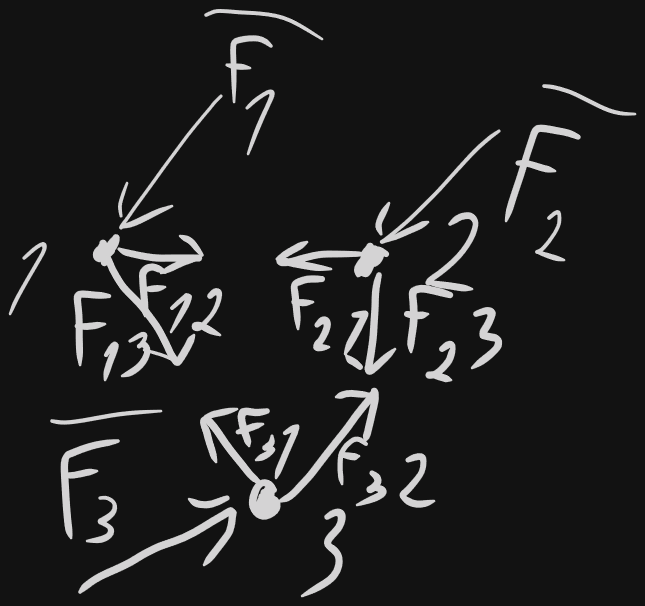 F̅1
F̅2
1
2
F12
F13
F21
F23
F̅3
F31
F32
3